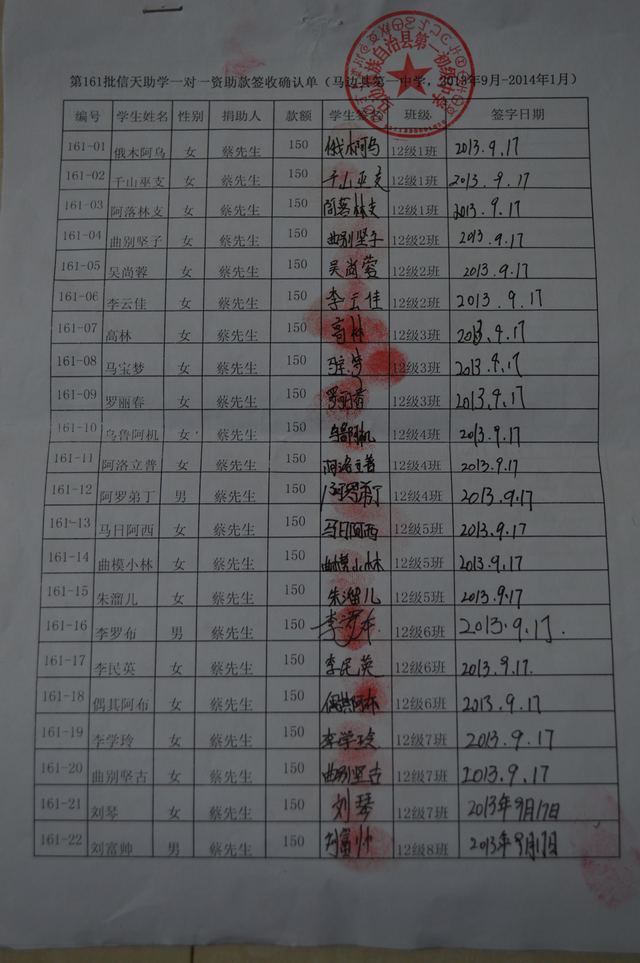 第161批信天助学一对一资助款签收确认单（马边县第一中学，2013年9月-2014年1月）
编号 学生姓名 性别 捐助人 款额 学生签名 班级 签字日期
161-01 俄木阿乌 女 蔡先生 150 俄木阿乌 12级1班 2013.9.17
161-02 千山巫支 女 蔡先生 150 千山巫支 12级1班 2013.9.17
161-03 阿落林支 女 蔡先生 150 阿落林支 12级1班 2013.9.17
161-04 曲别坚子 女 蔡先生 150 曲别坚子 12级2班 2013.9.17
161-05 吴尚蓉 女 蔡先生 150 吴尚蓉 12级2班 2013.9.17
161-06 李云佳 女 蔡先生 150 李云佳 12级2班 2013.9.17
161-07 高林 女 蔡先生 150 高林 12级3班 2013.9.17
161-08 马宝梦 女 蔡先生 150 马宝梦 12级3班 2013.9.17
161-09 罗丽春 女 蔡先生 150 罗丽春 12级3班 2013.9.17
161-10 乌鲁阿机 女 蔡先生 150 乌鲁阿机 12级4班 2013.9.17
161-11 阿洛立普 女 蔡先生 150 阿洛立普 12级4班 2013.9.17
161-12 阿罗弟丁 男 蔡先生 150 阿罗弟丁 12级4班 2013.9.17
161-13 马日阿西 女 蔡先生 150 马日阿西 12级5班 2013.9.17
161-14 曲模小林 女 蔡先生 150 曲模小林 12级5班 2013.9.17
161-15 朱溜儿 女 蔡先生 150 朱溜儿 12级5班 2013.9.17
161-16 李罗布 男 蔡先生 150 李罗布 12级6班 2013.9.17.
161-17 李民英 女 蔡先生 150 李民英 12级6班 2013.9.17.
161-18 偶其阿布 女 蔡先生 150 偶其阿布 12级6班 2013.9.17
161-19 李学玲 女 蔡先生 150 李学玲 12级7班 2013.9.17
161-20 曲别坚古 女 蔡先生 150 曲别坚古 12级7班 2013.9.17
161-21 刘琴 女 蔡先生 150 刘琴 12级7班 2013年9月17日
161-22 刘富帅 男 蔡先生 150 刘富帅 12级8班 2013年9月17日